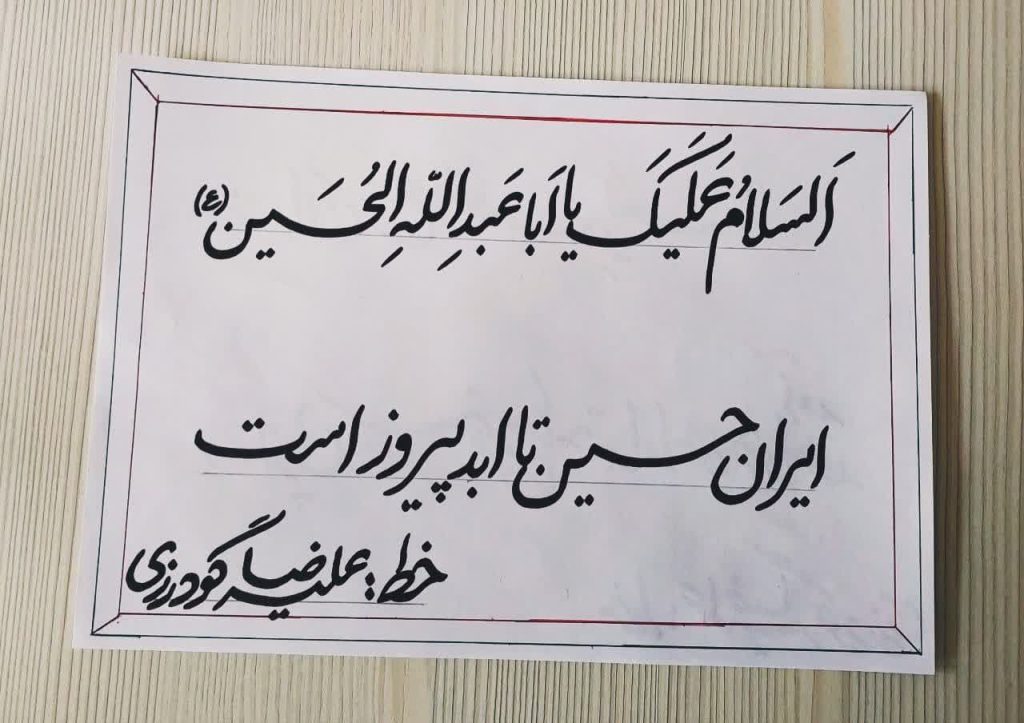 اَلسَلامُ عَلَیکَ یا اَبا عَبدِاللّهِ الحُسَین (ع)
ایران حسین تا ابد پیروز است
خط: علیرضا گودرزی